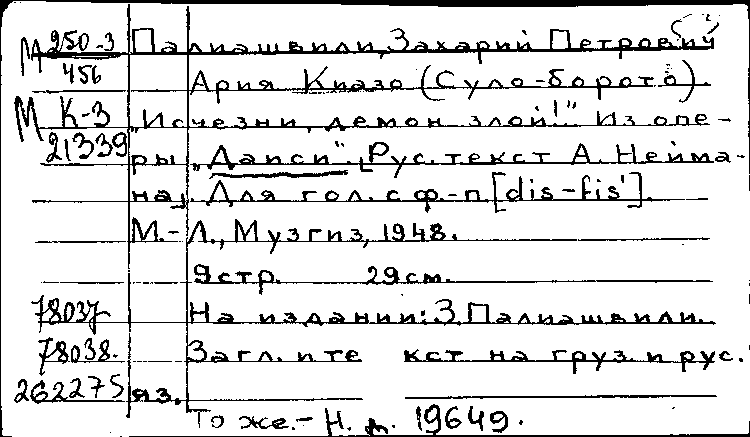 М 250-3 Палиашвили, Захарий Петрович
456 Ария Киазо (Суло-борото).
М К-3 „Исчезни, демон злой!" Из опе-
21339 ры „Даиси". [Рус. текст А. Нейма-
на]. Для гол. с ф.-п. [dis-fis'].
М.-Л., Музгиз, 1948.
9 стр. 29 см.
78037 На издании: З. Палиашвили.
78038. Загл. и те кст на груз. и рус.
262275 яз.
То же. - Н. д. 19649.